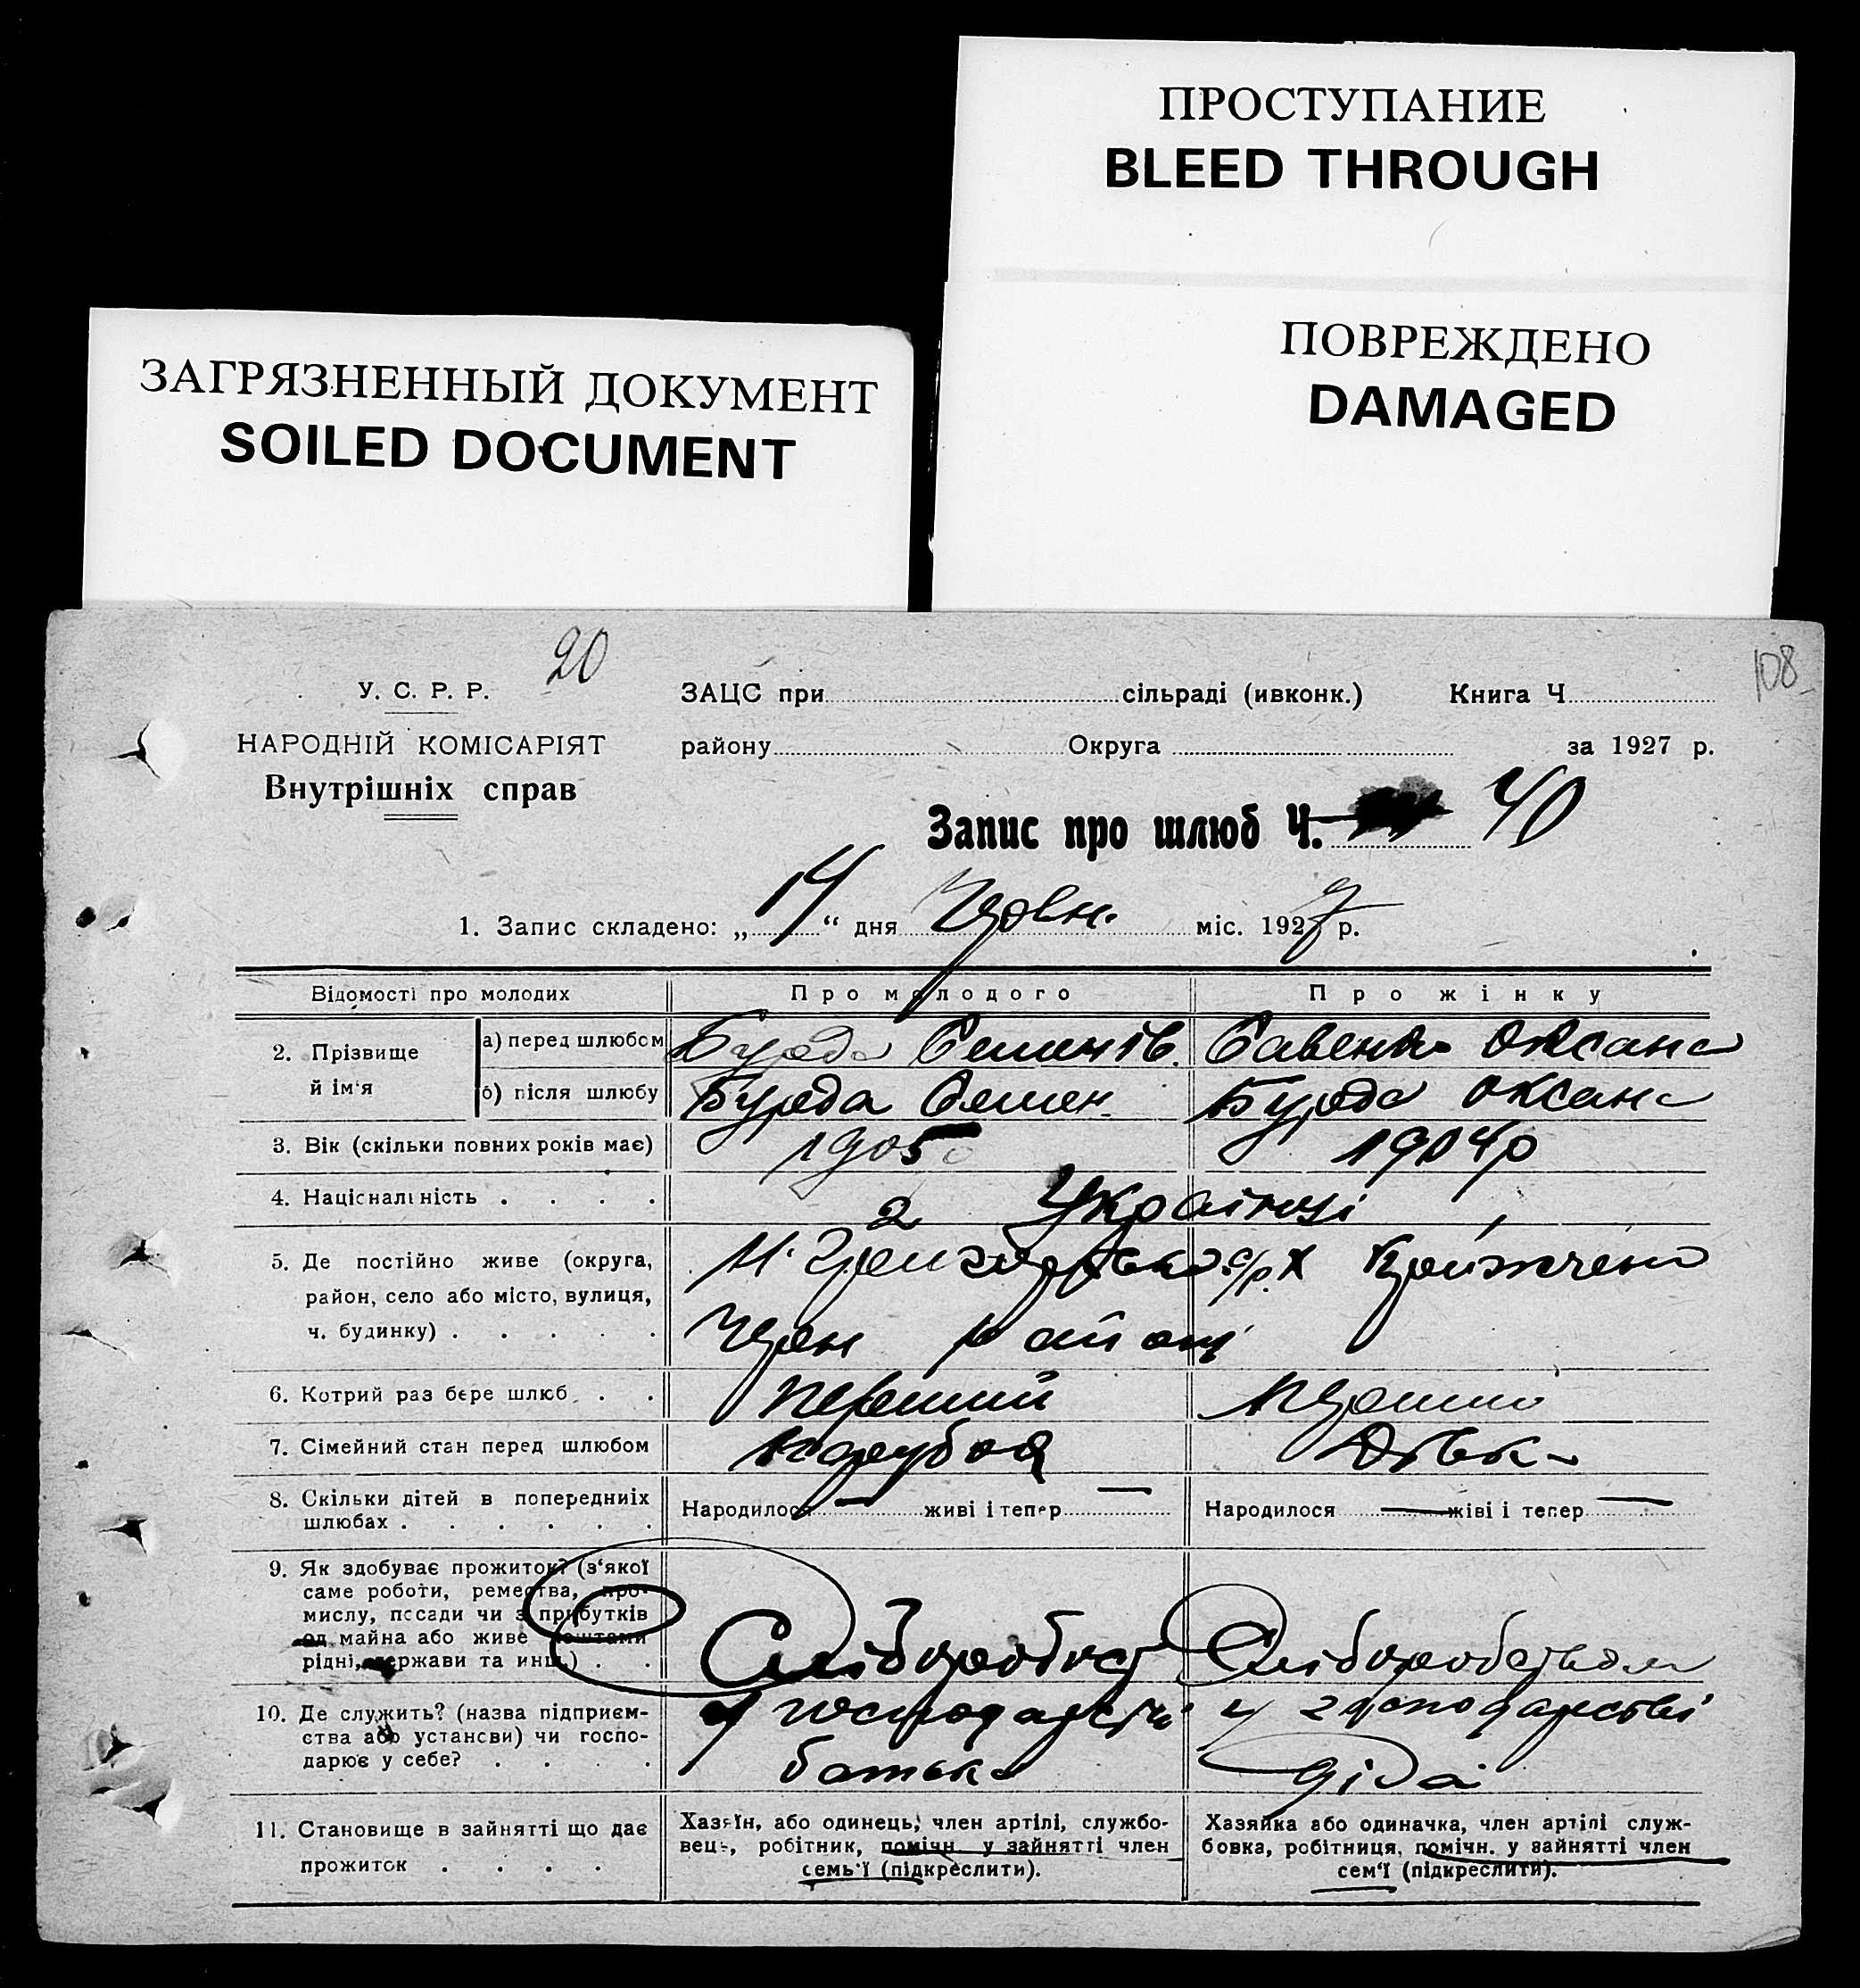 ПРОСТУПАНИЕ
BLEED THROUGH
ПОВРЕЖДЕНО
DAMAGED
ЗАГРЯЗНЕННЫЙ ДОКУМЕНТ
SOILED DOCUMENT
20
108
У. С. Р. Р.
НАРОДНІЙ КОМІСАРІЯТ
Внутрішніх справ
ЗАЦС при сільраді (ивконк.) Книга Ч
району Округа за 1927 р.
Запис про шлюб Ч. 40
1. Запис складено: „ 14 “ дня Червн. міс. 1927 р.
Відомості про молодих Про молодого Про жінку
2. Прізвище й ім'я
а) перед шлюбом Бурда Семенів. Савенко Оксана
б) після шлюбу Бурда Семен Бурда Оксана
3. Вік (скільки повних років має) 1905 1904р
4. Національність . . . . 2 Українці
5. Де постійно живе (округа,
район, село або місто, вулиця,
ч. будинку) . . . . .
с/р. х
Чрен району
6. Котрий раз бере шлюб . . перший перший
7. Сімейний стан перед шлюбом парубок Дівка
8. Скільки дітей в попередниіх
шлюбах . . . . . .
Народилося — живі і тепер — Народилося — жіві і тепер —
9. Як здобуває прожиток? (з'якої
саме роботи, ремества, про-
мислу, посади чи з прибутків
од майна або живе коштами
рідні, держави та инш.) . .
Хліборобст Хліборобством
10. Де служить? (назва підприєм-
ства або установи) чи госпо-
дарює у себе? . . . .
у господарстві у господарстві
батька діда
11. Становище в зайнятті що дає
прожиток . . . .
Хазяїн, або одинець, член артілі, службо-
вець, робітник, помічн. у зайнятті член
семь'ї (підкреслити).
Хазяйка або одиначка, член артілі служ-
бовка, робітниця, помічн. у зайнятті член
сем'ї (підкреслити).